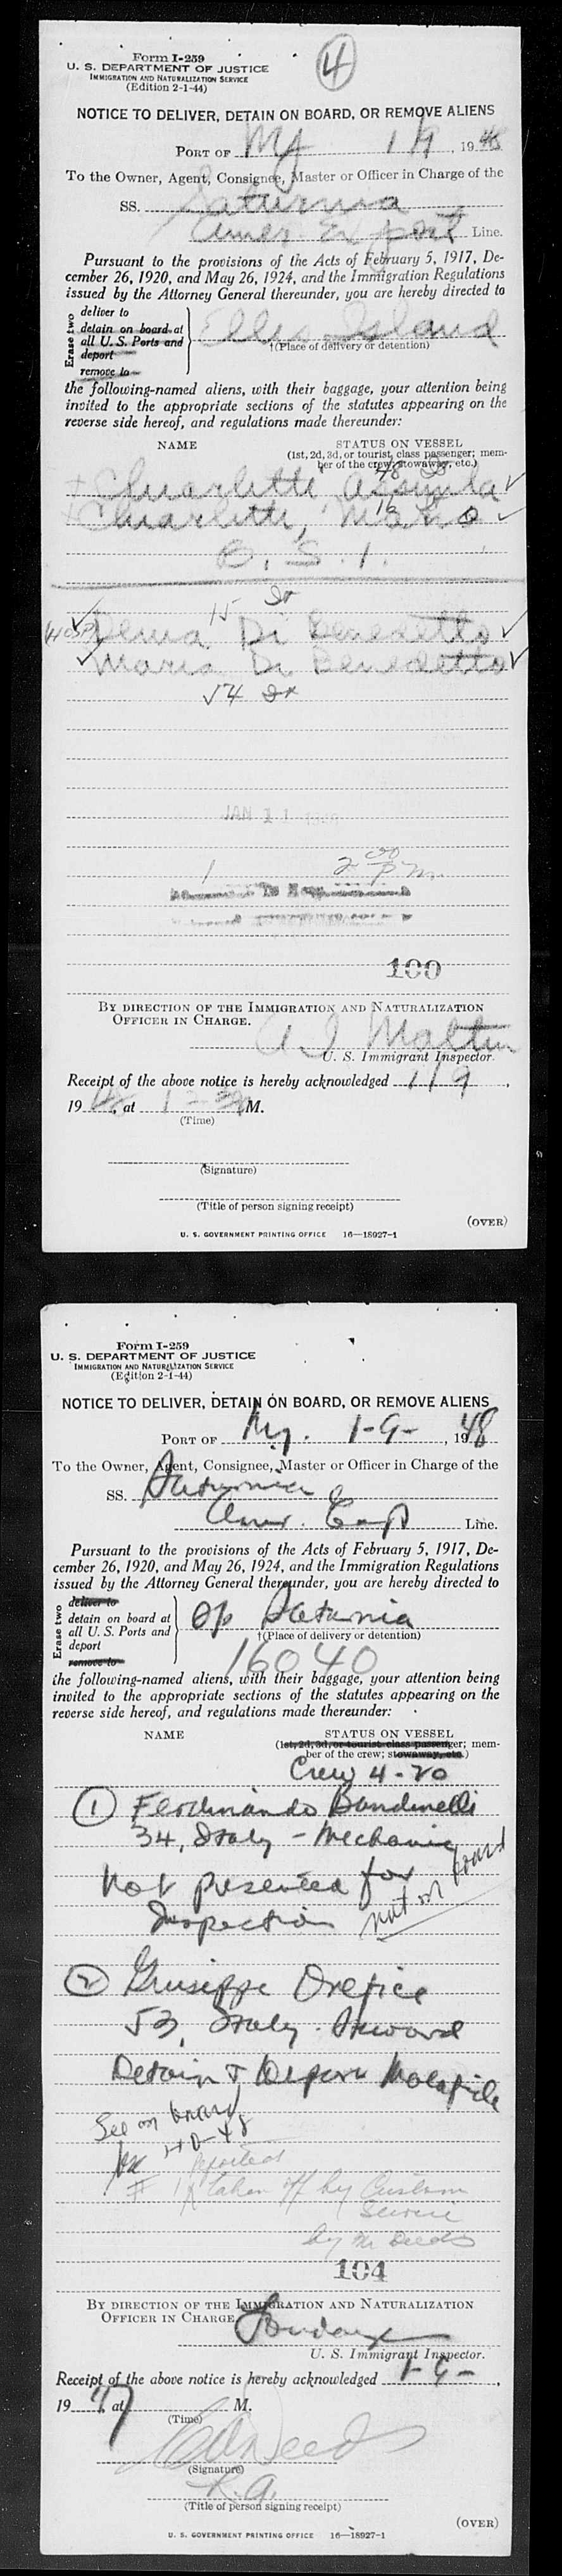 Form I-259
U. S. DEPARTMENT OF JUSTICE
IMMIGRATION AND NATURALIZATION SERVICE
(Edition 2-1-44)
4
NOTICE TO DELIVER, DETAIN ON BOARD, OR REMOVE ALIENS
PORT OF NY 1/9, 1948
To the Owner, Agent, Consignee, Master or Officer in Charge of the
SS. Saturnia
Amer Export Line.
Pursuant to the provisions of the Acts of February 5, 1917, De-
cember 26, 1920, and May 26, 1924, and the Immigration Regulations
issued by the Attorney General thereunder, you are hereby directed to
Erase two
deliver to
detain on board at
all U. S. Ports and
deport
remove to
Ellis Island
†(Place of delivery or detention)
the following-named aliens, with their baggage, your attention being
invited to the appropriate sections of the statutes appearing on the
reverse side hereof, and regulations made thereunder:
NAME STATUS ON VESSEL
(1st, 2d, 3d, or tourist class passenger; mem-
ber of the crew; stowaway, etc.)
48
Charlette
16
B. S. I.
15
Hosp Di Benedetto
Maria Di Benedetto
54
JAN 11
1 2 00 p m
100
BY DIRECTION OF THE IMMIGRATION AND NATURALIZATION
OFFICER IN CHARGE.
U. S. Immigrant Inspector.
Receipt of the above notice is hereby acknowledged 1/9,
1948, at M.
(Time)
(Signature)
(Title of person signing receipt)
(OVER)
U. S. GOVERNMENT PRINTING OFFICE 16—18927-1
Form I-259
U. S. DEPARTMENT OF JUSTICE
IMMIGRATION AND NATURALIZATION SERVICE
(Edition 2-1-44)
NOTICE TO DELIVER, DETAIN ON BOARD, OR REMOVE ALIENS
PORT OF Ny. 1-9-, 1948
To the Owner, Agent, Consignee, Master or Officer in Charge of the
SS. Saturnia
Amer. Exp Line.
Pursuant to the provisions of the Acts of February 5, 1917, De-
cember 26, 1920, and May 26, 1924, and the Immigration Regulations
issued by the Attorney General thereunder, you are hereby directed to
Erase two
deliver to
detain on board at
all U. S. Ports and
deport
remove to
Saturnia
†(Place of delivery or detention)
16040
the following-named aliens, with their baggage, your attention being
invited to the appropriate sections of the statutes appearing on the
reverse side hereof, and regulations made thereunder:
NAME STATUS ON VESSEL
(1st, 2d, 3d, or tourist class passenger; mem-
ber of the crew; stowaway, etc.)
Crew 4-20
1 Ferdinando Bandinelli
34, Italy - Mechanic
Not presented for
Inspection not on board
2 Giuseppe Orefice
53, Italy. Steward
Detain & Deport Malafide
See on board
1-10-48
# 1 taken off by Custom
Service
by Mr Deeds
104
BY DIRECTION OF THE IMMIGRATION AND NATURALIZATION
OFFICER IN CHARGE
U. S. Immigrant Inspector.
Receipt of the above notice is hereby acknowledged 1-9-,
1947, at M.
(Time)
(Signature)
(Title of person signing receipt)
(OVER)
U. S. GOVERNMENT PRINTING OFFICE 16—18927-1